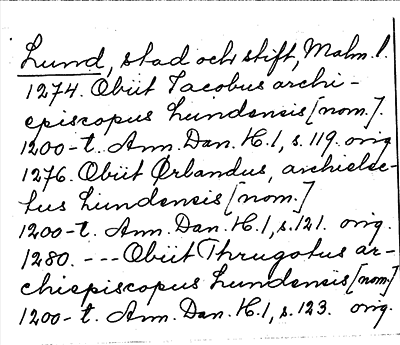 Lund, stad och stift, Malm. l.
1274. Obiit Jacobus archi-
episcopus Lundensis [nom.].
1200-t. Ann. Dan. H. 1, s. 119. orig
1276. Obiit Ørlandus, archielec-
tus Lundensis [nom.]
1200-t. Ann. Dan. H. 1, s. 121. orig.
1280. --- Obiit Thrugotus ar-
chiepiscopus Lundensis [nom]
1200-t. Ann. Dan. H. 1, s. 123. orig.